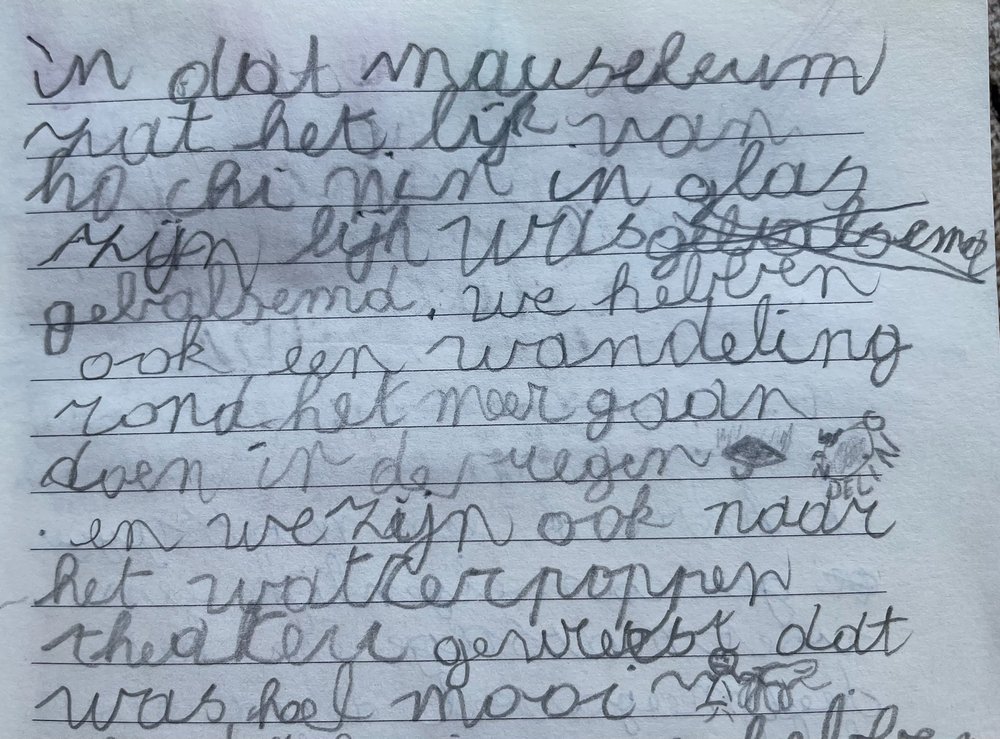 in dat mauseleum
zat het lijk van
ho chi min in glas
zijn lijk was
gebalsemd. we hebben
ook een wandeling
rond het meer gaan
doen in de regen
DEL
. en we zijn ook naar
het watterpoppen
theater geweest dat
was heel mooi